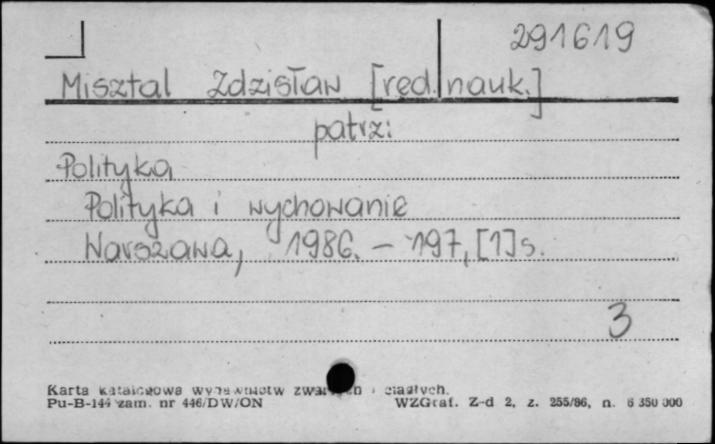 291619
Misztal Zdzisław [red. nauk.]
patrz:
Polityka
Polityka i wychowanie
Warszawa, 1986. – 197, [1] s.
3
Karta katalogowa wydawnictw zwartych i ciągłych.
Pu-B-144 zam. nr 446/DW/ON WZGraf. Z-d 2, z. 255/86, n. 6 350 000